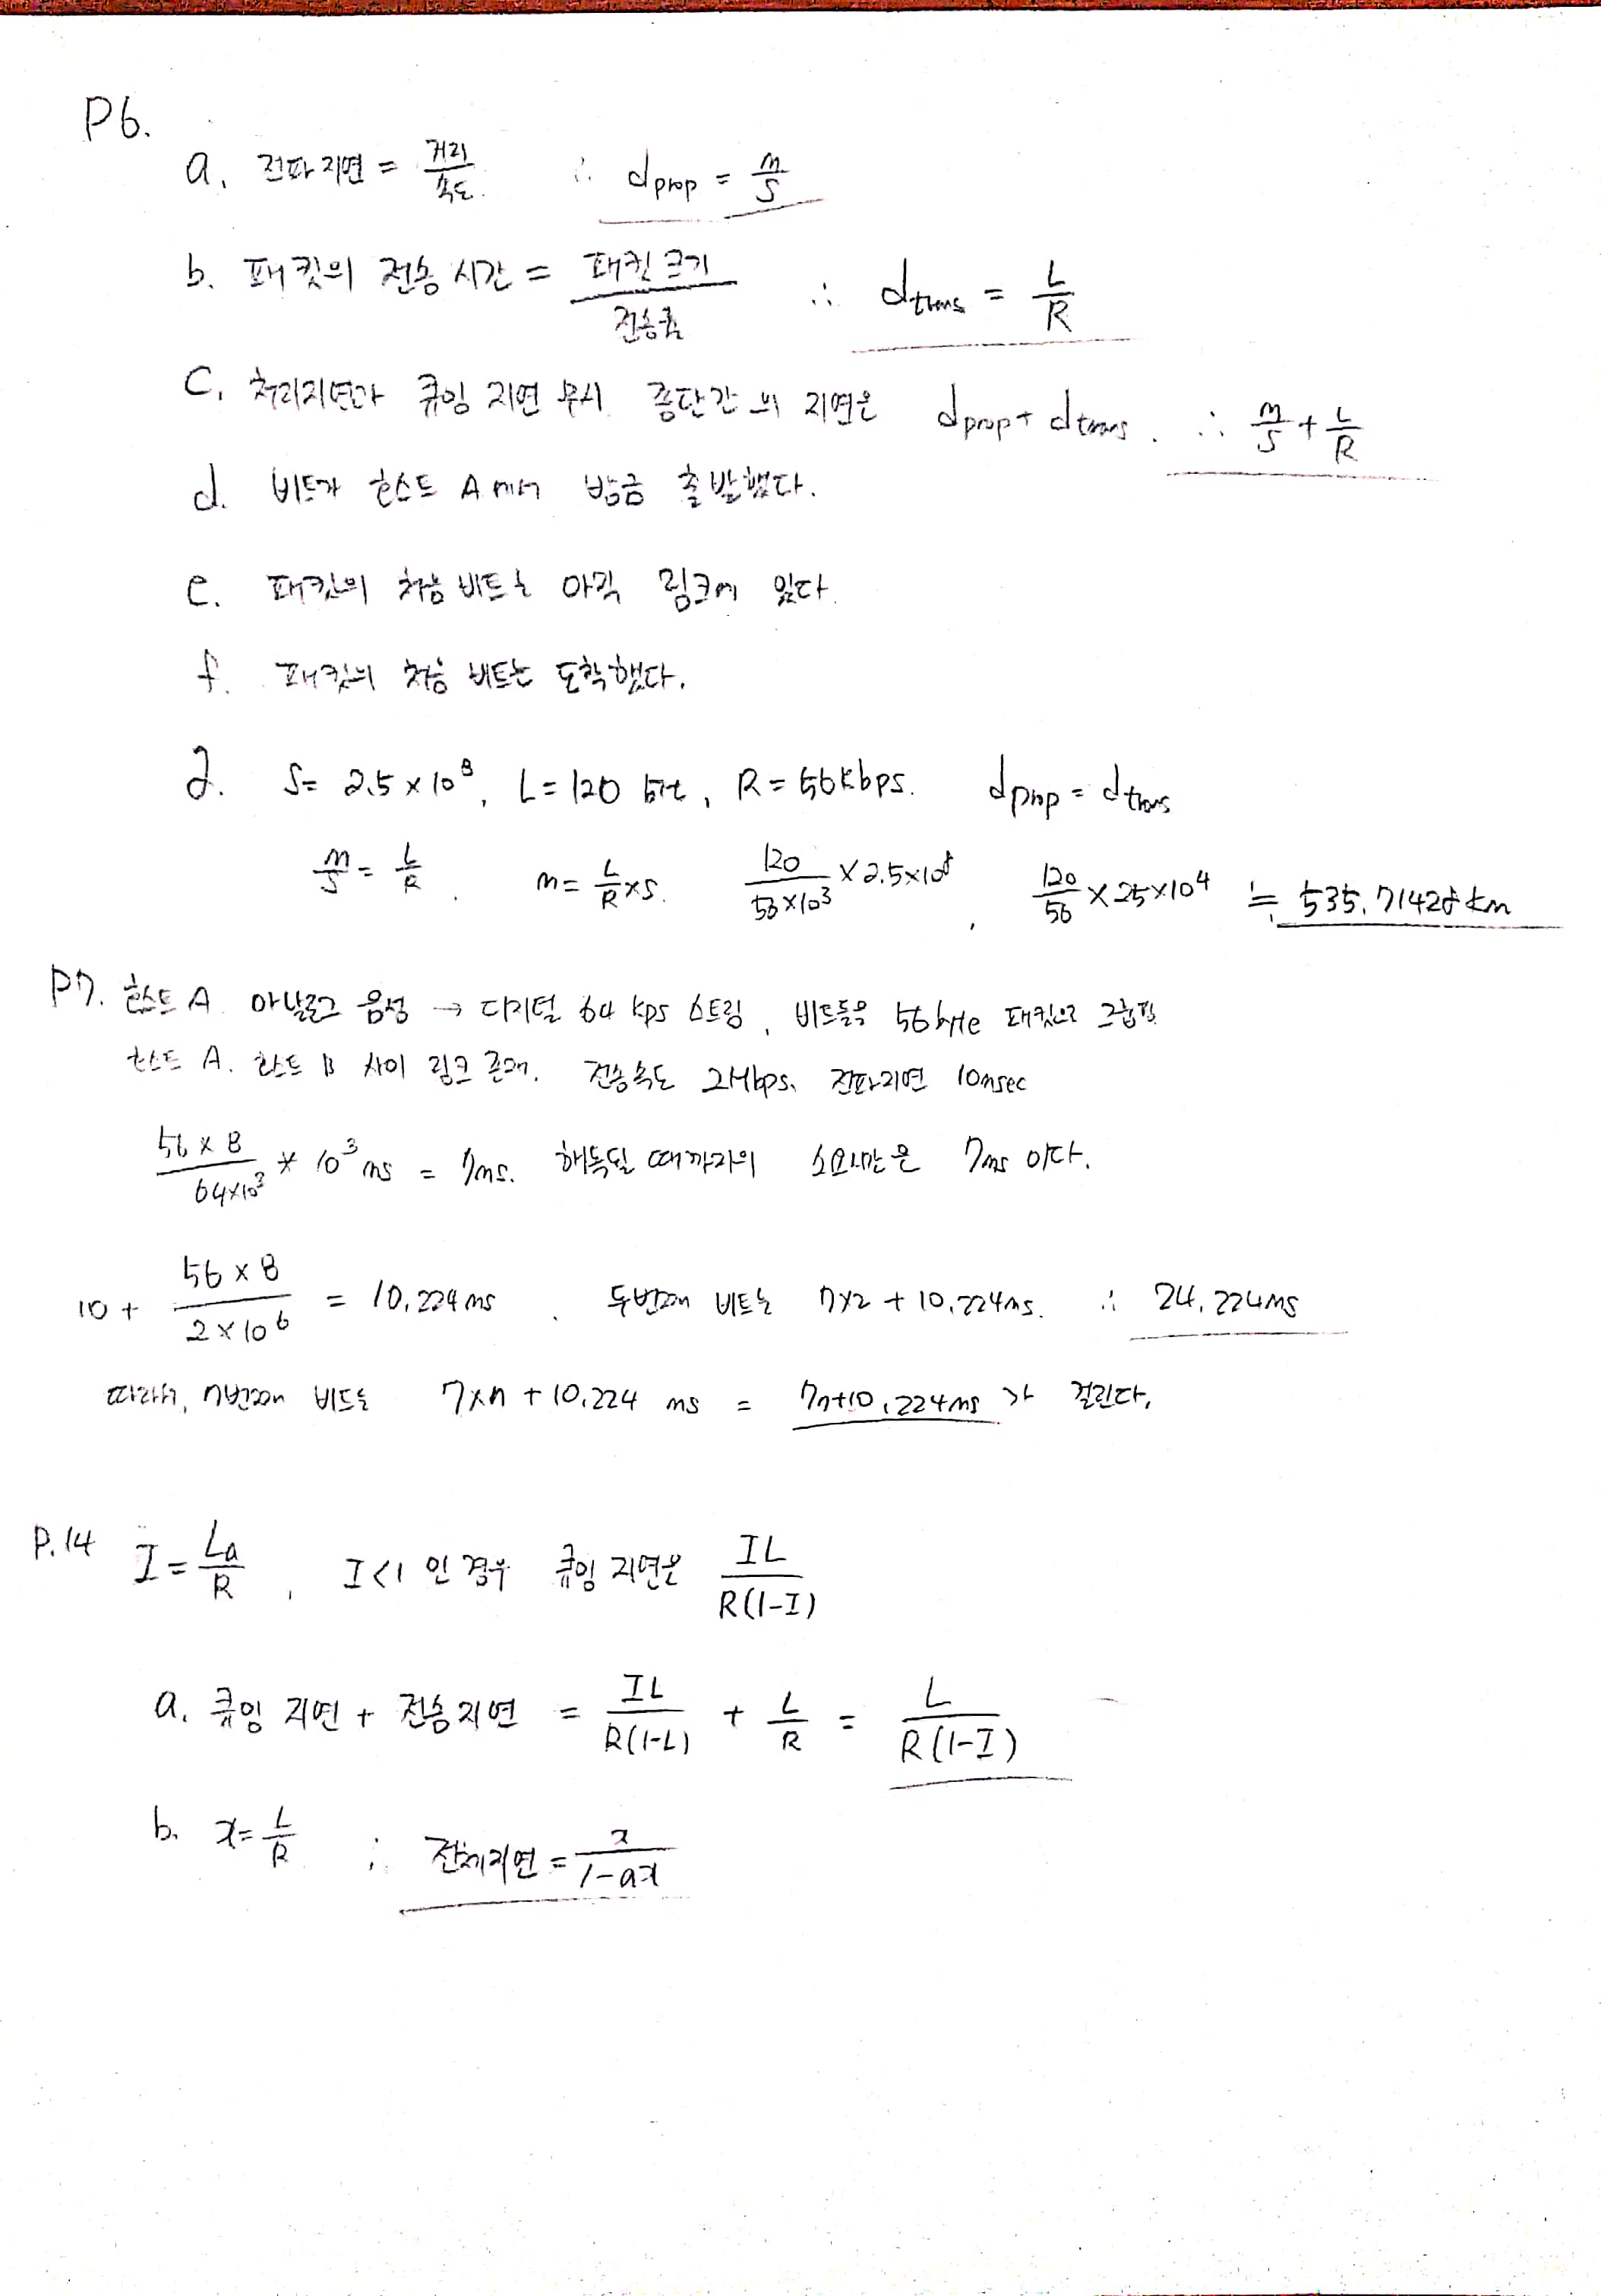 P6.
a. 전파지연 = 거리/속도 ∴ dprop = m/s
b. 패킷의 전송 시간 = 패킷 크기/전송률 ∴ dtrans = L/R
c. 처리지연과 큐잉 지연 무시 종단간의 지연은 dprop + dtrans. ∴ m/s + L/R
d. 비트가 호스트 A에서 방금 출발했다.
e. 패킷의 처음 비트는 아직 링크에 있다.
f. 패킷의 처음 비트는 도착했다.
g. S = 2.5 × 10^8, L = 120 bit, R = 56kbps. dprop = dtrans
m/s = L/R. m = L/R × S. 120/56×10^3 × 2.5×10^8, 120/56 × 25×10^4 ≒ 535.71428 km
P7. 호스트 A 아날로그 음성 → 디지털 64 kps 스트링, 비트들을 56byte 패킷으로 그룹핑
호스트 A. 호스트 B 사이 링크 존재. 전송속도 2Mbps. 전파지연 10msec
56×8/64×10^3 * 10^3 ms = 7ms. 해독될 때까지의 소요시간은 7ms 이다.
10 + 56×8/2×10^6 = 10.224ms. 두번째 비트는 7×2 + 10.224ms. ∴ 24.224ms
따라서, n번째 비트는 7×n + 10.224 ms = 7n+10.224ms가 걸린다.
P.14 I = La/R, I<1 인 경우 큐잉 지연은 IL/R(1-I)
a. 큐잉 지연 + 전송지연 = IL/R(1-L) + L/R = L/R(1-I)
b. x = L/R ∴ 전체지연 = x/1-ax